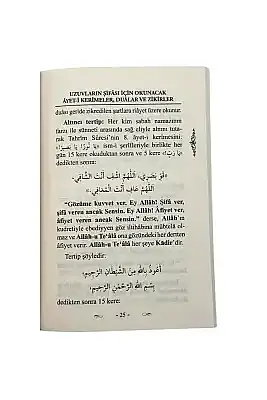 UZUVLARIN ŞİFASI İÇİN OKUNACAK
ÂYET-İ KERİMELER, DUÂLAR VE ZİKİRLER
duâsı geride zikredilen şartlara riâyet üzere okunur.
Altıncı tertip: Her kim sabah namazının
farzı ile sünneti arasında sağ eliyle alnını tuta-
rak Tahrîm Sûresi'nin 8. âyet-i kerîmesini;
ism-i şerîfleriyle birlikte her
gün 15 kere okuduktan sonra ve 5 kere «يَا رَبِّ»
dedikten sonra;
بَصَرِي، اَللّٰهُمَّ اشْفِ اَنْتَ الشَّافِي،
اَللّٰهُمَّ عَافِ اَنْتَ الْمُعَافِي»
"Gözüme kuvvet ver, Ey Allâh! Şifâ ver,
şifâ veren ancak Sensin. Ey Allâh! Âfiyet ver,
âfiyet veren ancak Sensin." derse, Allâh'ın
kudretiyle ebediyyen göz iltihâbına mübtelâ ol-
maz ve Allâh-u Te'âlâ ona gözündeki her dertten
âfiyet verir. Allâh-u Te'âlâ her şeye Kâdir'dir.
Tertip şöyledir:
اَعُوذُ بِاللّٰهِ مِنَ الشَّيْطَانِ الرَّجِيمِ،
بِسْمِ اللّٰهِ الرَّحْمٰنِ الرَّحِيمِ
dedikten sonra 15 kere:
- 25 -